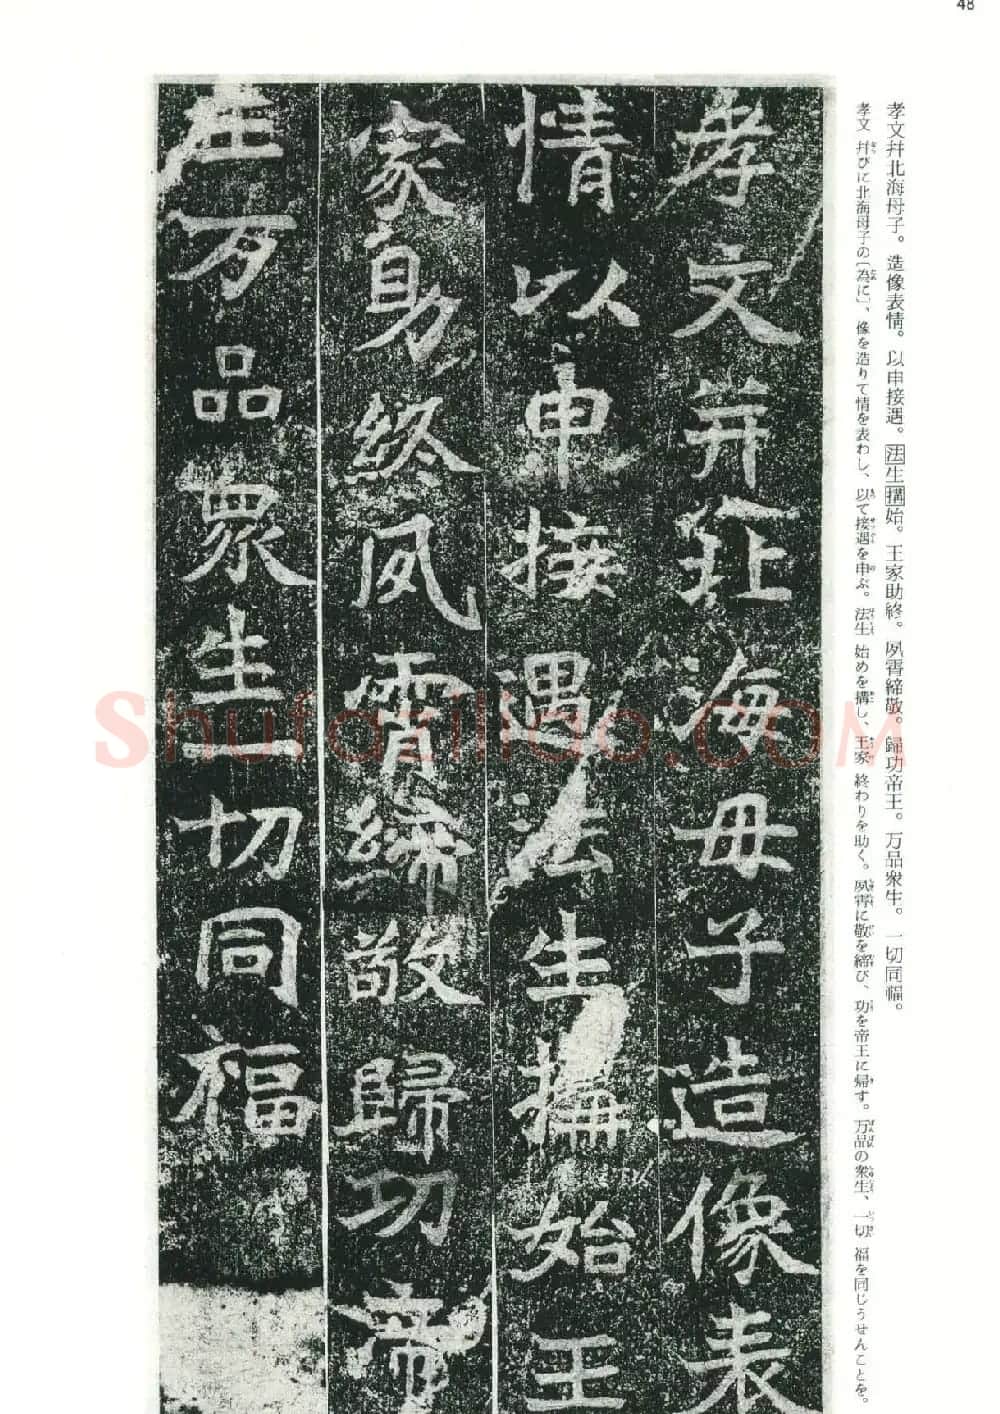 48
孝文幷北海母子。造像表情。以申接遇。法生構始。王家助終。夙霄締敬。歸功帝王。万品衆生。一切同福。
孝文 幷びに北海母子の〔為に〕、像を造りて情を表わし、以て接遇を申ぶ。法生 始めを構し、王家 終わりを助く。夙霄に敬を締び、功を帝王に帰す。万品の衆生、一切 福を同じうせんことを。
孝文并北海母子造像表
情以申接遇法生構始王
家助終夙霄締敬歸功帝
王万品衆生一切同福
Shufaziliao.COM